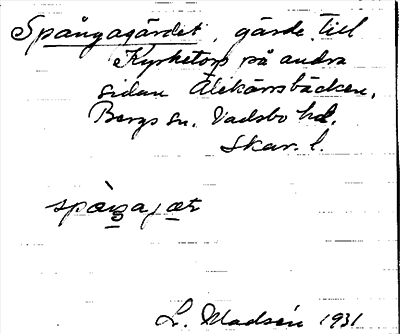 Spångagärdet, gärde till
Kyrketorp på andra
sidan Älekärrsbäcken.
Bergs sn. Vadsbo hd.
Skar. l.
L. Madsén 1931